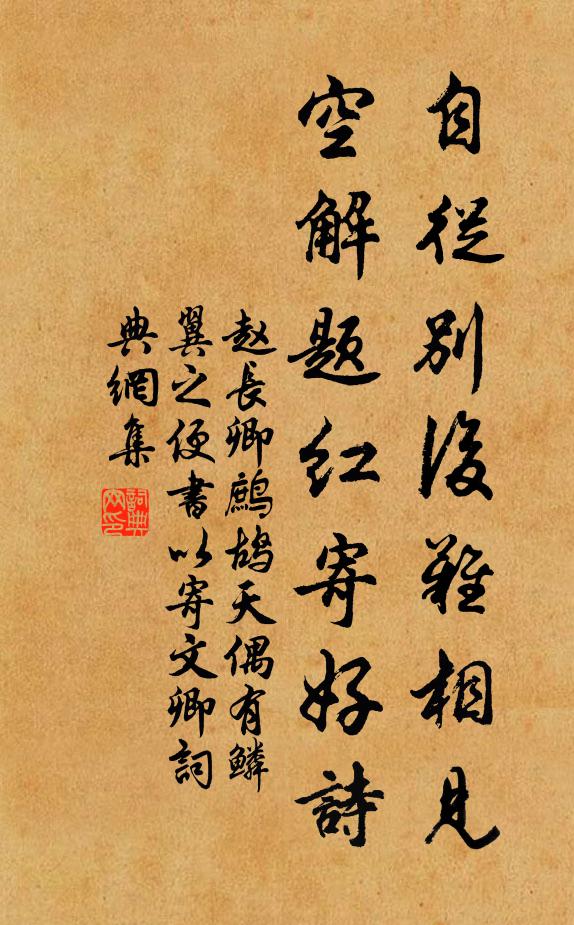 自從別後難相見
空解题红寄好詩
赵長卿鷓鴣天偶有鱗
翼之便書以寄文卿詞
典網集
詞典
网印